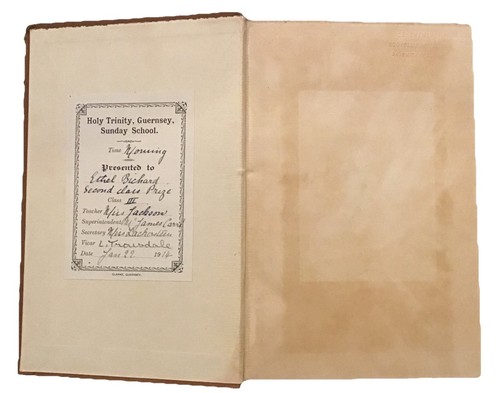 Holy Trinity, Guernsey,
Sunday School.
Time Morning
Presented to
Ethel Bichard
Second class Prize
Class III
Teacher Miss Jackson
Superintendent Mr James
Secretary Miss
Vicar L. Trousdale
Date Jan 22 191